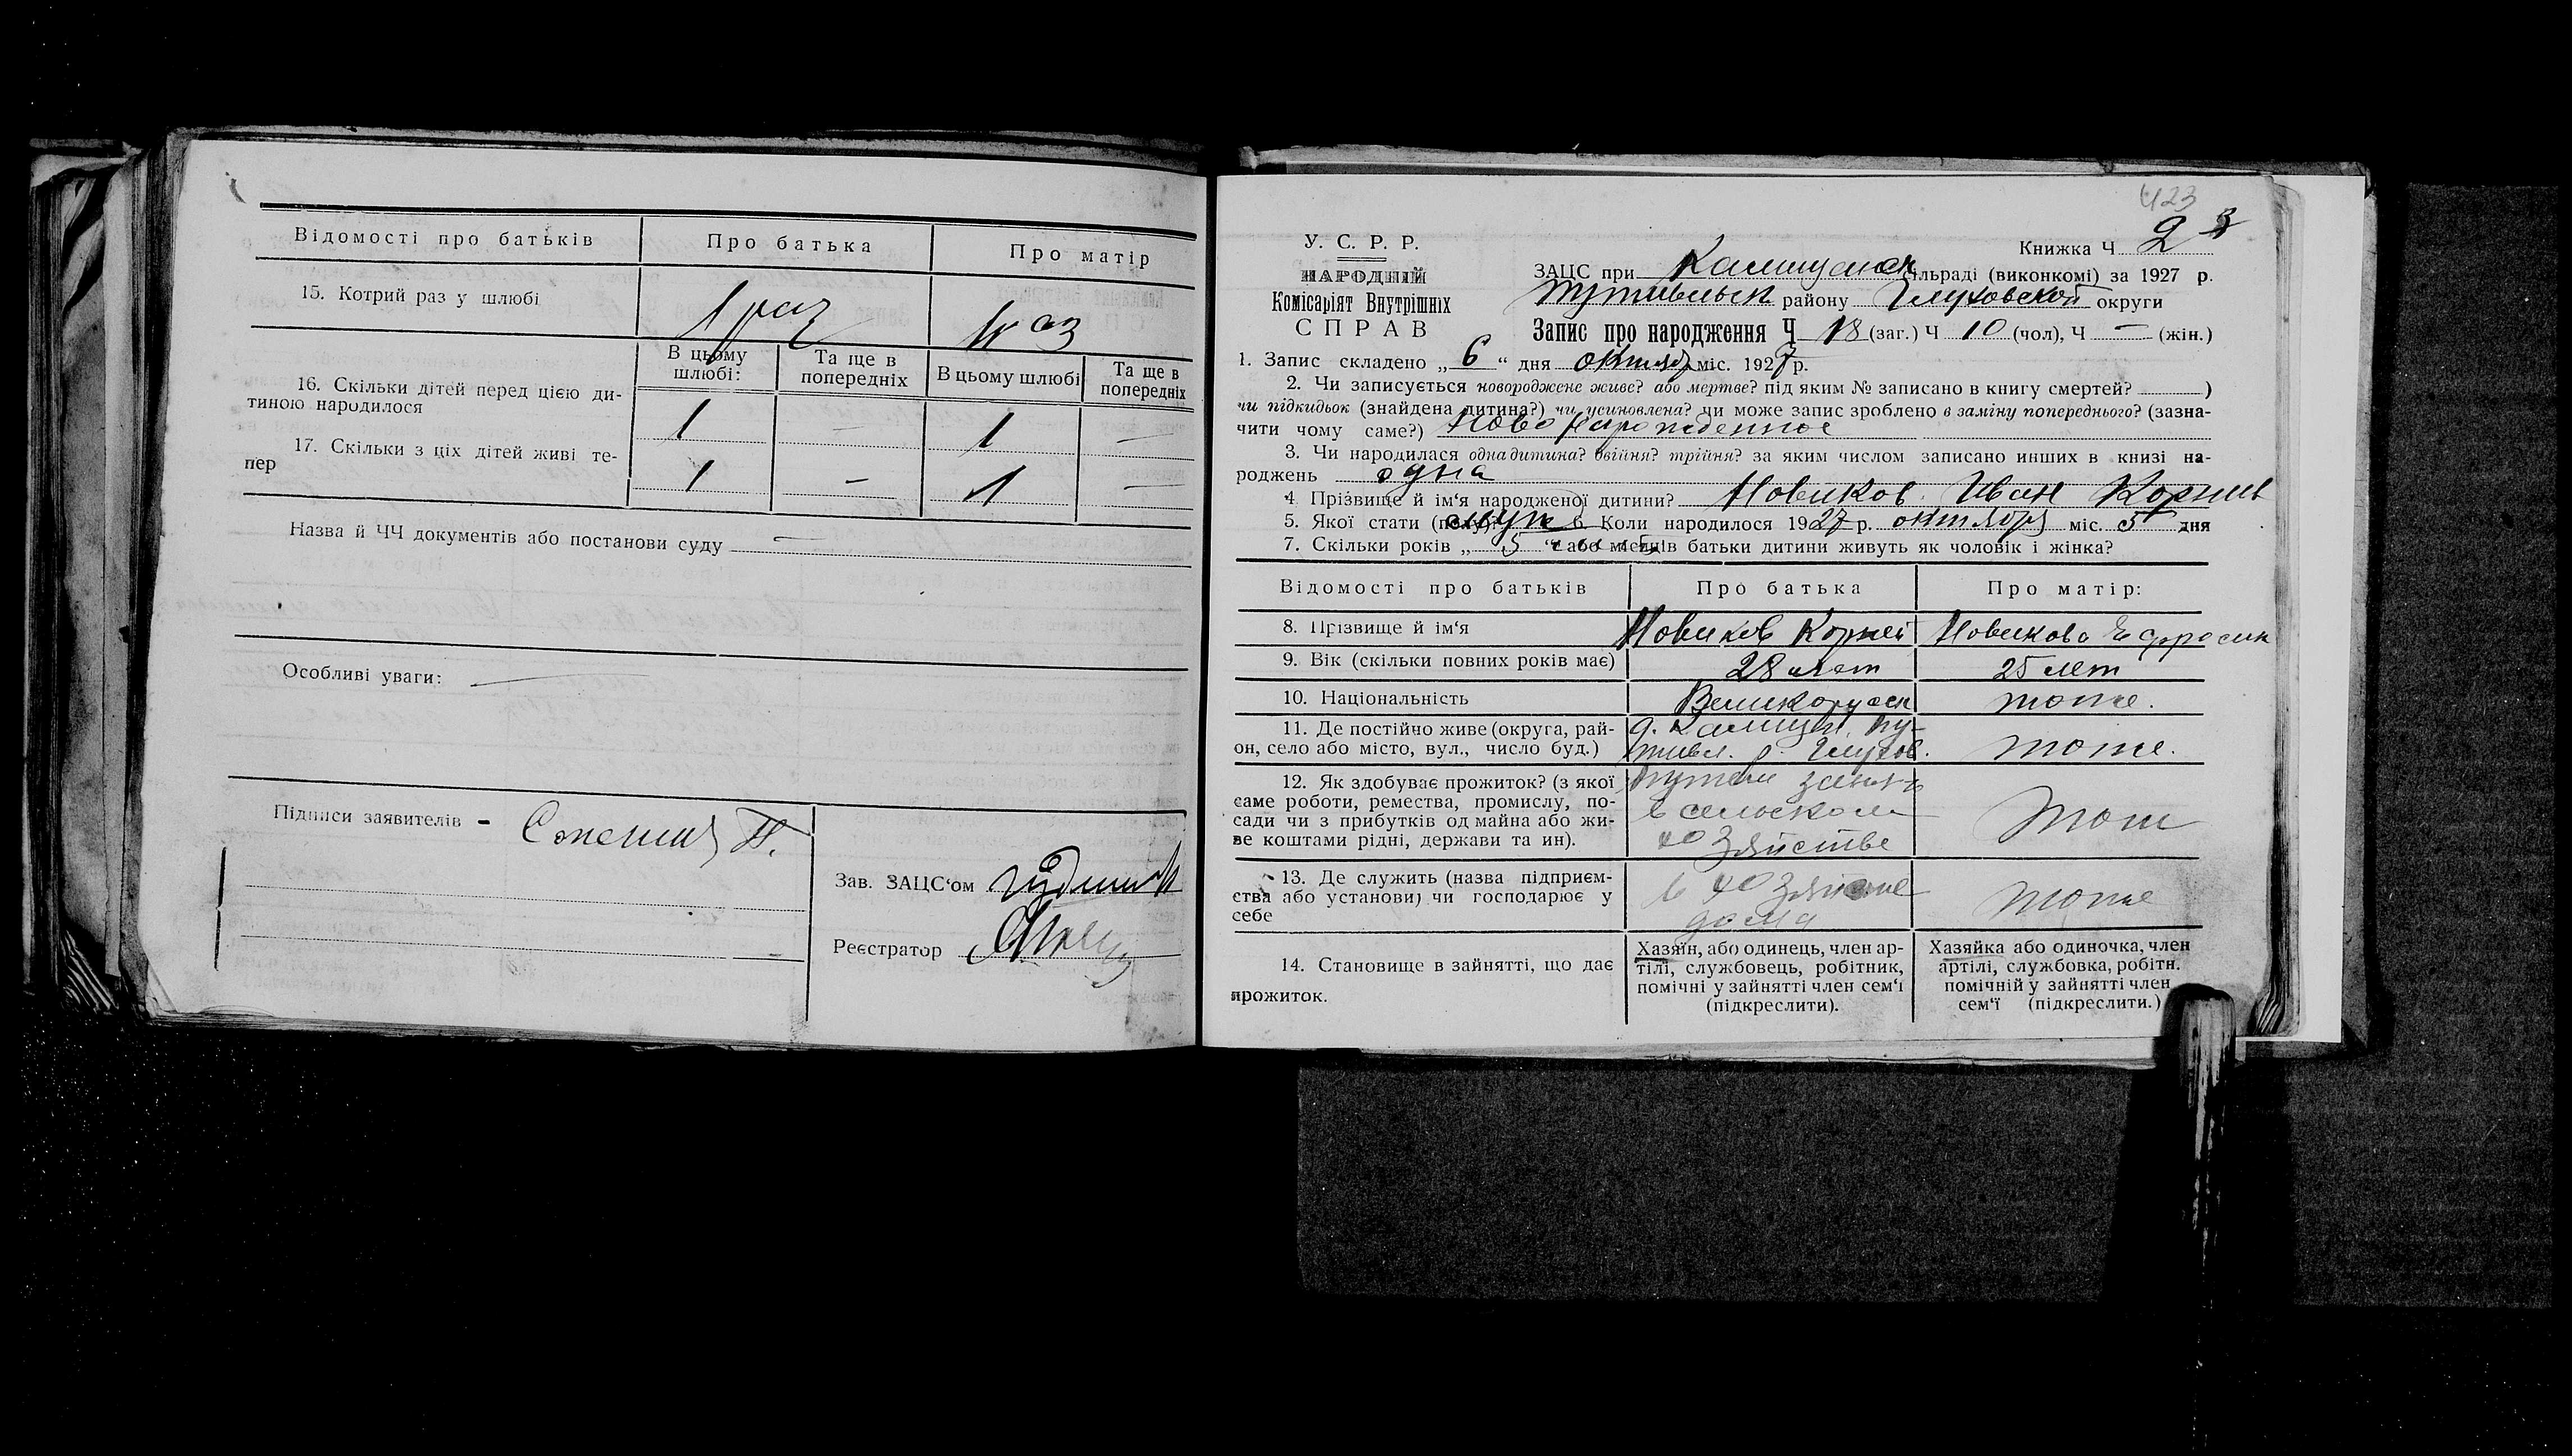 Відомості про батьків Про батька Про матір
15. Котрий раз у шлюбі 1 раз 1 раз
В цьому шлюбі: Та ще в попередніх В цьому шлюбі Та ще в попередніх
16. Скільки дітей перед цією ди-
тиною народилося 1 — 1 —
17. Скільки з ціх дітей живі те-
пер 1 — 1 —
Назва й ЧЧ документів або постанови суду —
Особливі уваги: —
Підписи заявителів -
Зав. ЗАЦС‘ом
Реєстратор
423
Книжка Ч 2
У. С. Р. Р.
НАРОДНІЙ
Комісаріят Внутрішніх
СПРАВ
ЗАЦС при сільраді (виконкомі) за 1927 р.
Путивльск району Глуховской округи
Запис про народження Ч 18 (заг.) Ч 10 (чол), Ч — (жін.)
1. Запис складено „ 6 “ дня октябр міс. 1927 р.
2. Чи записується новороджене живе? або мертве? під яким № записано в книгу смертей? )
чи підкидьок (знайдена дитина?) чи усиновлена? чи може запис зроблено в заміну попереднього? (зазна-
чити чому саме?) Ново Нарожденное
3. Чи народилася одна дитина? двійня? трійня? за яким числом записано инших в книзі на-
роджень одна
4. Прізвище й ім‘я народженої дитини? Новиков Иван Корнев
5. Якої стати (полу)? муж 6. Коли народилося 1927 р. октября міс. 5 дня
7. Скільки років „ 5 “ або місяців батьки дитини живуть як чоловік і жінка?
Відомості про батьків Про батька Про матір:
8. Прізвище й ім‘я Новиков Корней Новикова Ефросин
9. Вік (скільки повних років має) 28 лет 25 лет
10. Національність Великорусск тоже.
11. Де постійно живе (округа, рай-
он, село або місто, вул., число буд.) Путивл. р. Глухов. тоже.
12. Як здобуває прожиток? (з якої
саме роботи, ремества, промислу, по-
сади чи з прибутків од майна або жи-
ве коштами рідні, держави та ин).
в сельском
хозяйстве
тоже
13. Де служить (назва підприєм-
ства або установи) чи господарює у
себе
в хозяйстве
дома
тоже
14. Становище в зайнятті, що дає
прожиток.
Хазяїн, або одинець, член ар-
тілі, службовець, робітник,
помічні у зайнятті член сем‘ї
(підкреслити).
Хазяйка або одиночка, член
артілі, службовка, робітн.
помічній у зайнятті член
сем‘ї (підкреслити.)